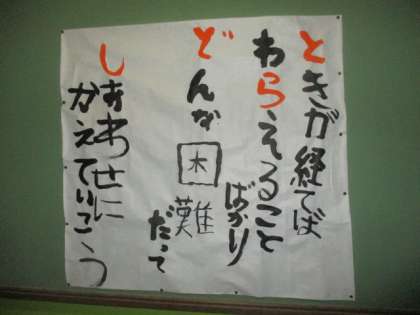 ときが経てば
わらえること
ばかり
どんな困難
だって
しあわせに
かえていこう